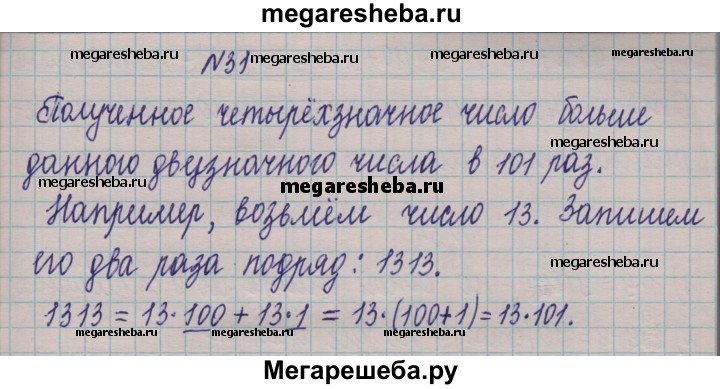 megaresheba.ru
megaresheba.ru megaresheba.ru megaresheba.ru megaresheba.ru
N31
Полученное четырёхзначное число больше
megaresheba.ru
данного двузначного числа в 101 раз.
megaresheba.ru megaresheba.ru
Например, возьмём число 13. Запишем
megaresheba.ru
его два раза подряд: 1313.
1313 = 13·100 + 13·1 = 13·(100+1) = 13·101.
megaresheba.ru megaresheba.ru megaresheba.ru megaresheba.ru
Мегарешеба.ру